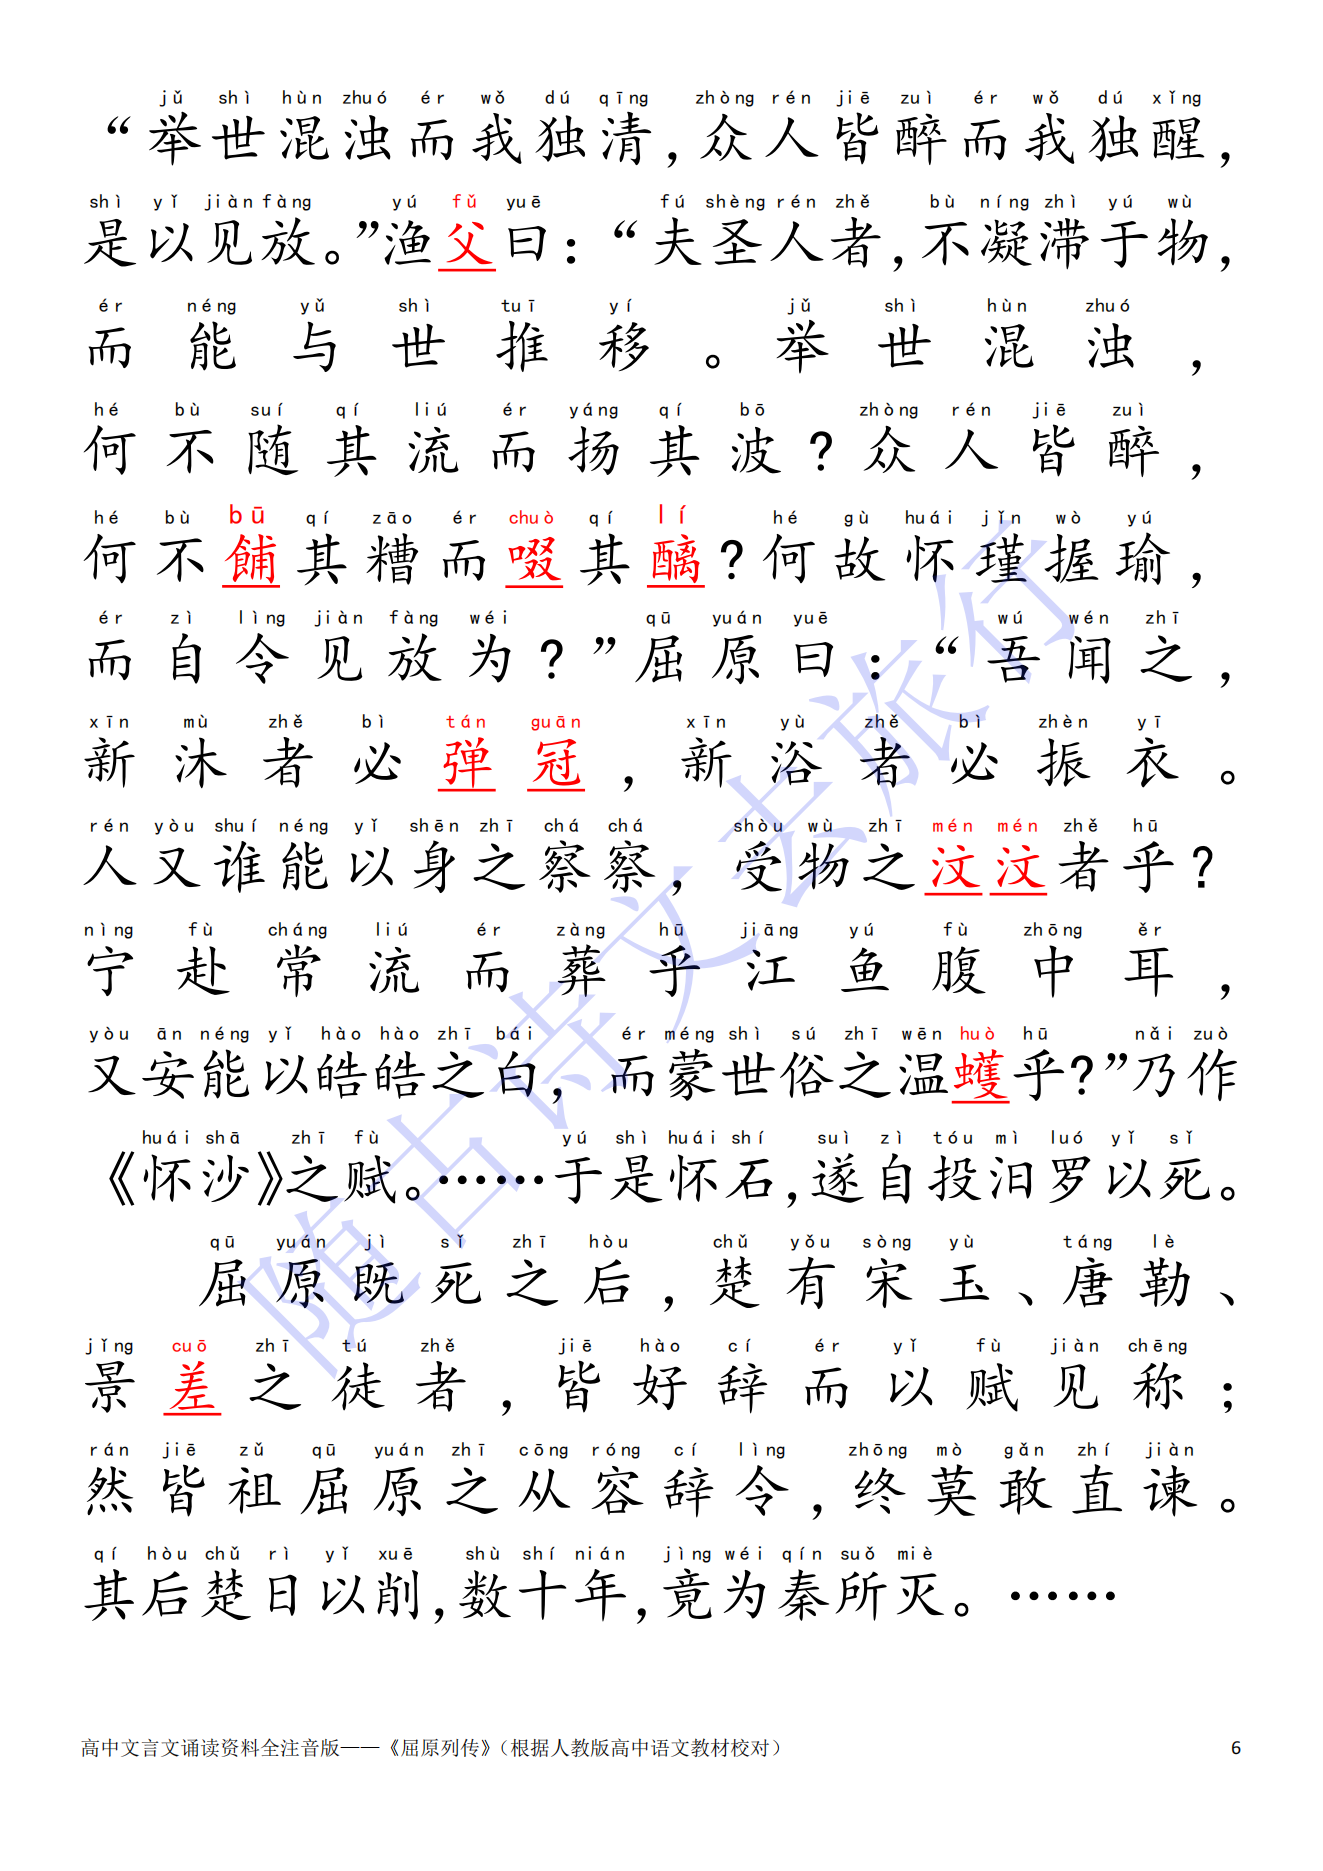 jǔ shì hùn zhuó ér wǒ dú qīng zhòng rén jiē zuì ér wǒ dú xǐng
“举世混浊而我独清，众人皆醉而我独醒，
shì yǐ jiàn fàng yú fǔ yuē fú shèng rén zhě bù níng zhì yú wù
是以见放。”渔父曰：“夫圣人者，不凝滞于物，
ér néng yǔ shì tuī yí jǔ shì hùn zhuó
而能与世推移。举世混浊，
hé bù suí qí liú ér yáng qí bō zhòng rén jiē zuì
何不随其流而扬其波？众人皆醉，
hé bù bū qí zāo ér chuò qí lí hé gù huái jǐn wò yú
何不餔其糟而啜其醨？何故怀瑾握瑜，
ér zì lìng jiàn fàng wéi qū yuán yuē wú wén zhī
而自令见放为？”屈原曰：“吾闻之，
xīn mù zhě bì tán guān xīn yù zhě bì zhèn yī
新沐者必弹冠，新浴者必振衣。
rén yòu shuí néng yǐ shēn zhī chá chá shòu wù zhī mén mén zhě hū
人又谁能以身之察察，受物之汶汶者乎？
nìng fù cháng liú ér zàng hū jiāng yú fù zhōng ěr
宁赴常流而葬乎江鱼腹中耳，
yòu ān néng yǐ hào hào zhī bái ér méng shì sú zhī wēn huò hū nǎi zuò
又安能以皓皓之白，而蒙世俗之温蠖乎？”乃作
huái shā zhī fù yú shì huái shí suì zì tóu mì luó yǐ sǐ
《怀沙》之赋。……于是怀石，遂自投汨罗以死。
qū yuán jì sǐ zhī hòu chǔ yǒu sòng yù táng lè
屈原既死之后，楚有宋玉、唐勒、
jǐng cuō zhī tú zhě jiē hào cí ér yǐ fù jiàn chēng
景差之徒者，皆好辞而以赋见称；
rán jiē zǔ qū yuán zhī cōng róng cí lìng zhōng mò gǎn zhí jiàn
然皆祖屈原之从容辞令，终莫敢直谏。
qí hòu chǔ rì yǐ xuē shù shí nián jìng wéi qín suǒ miè
其后楚日以削，数十年，竟为秦所灭。……
随古诗文去旅行
高中文言文诵读资料全注音版——《屈原列传》（根据人教版高中语文教材校对） 6